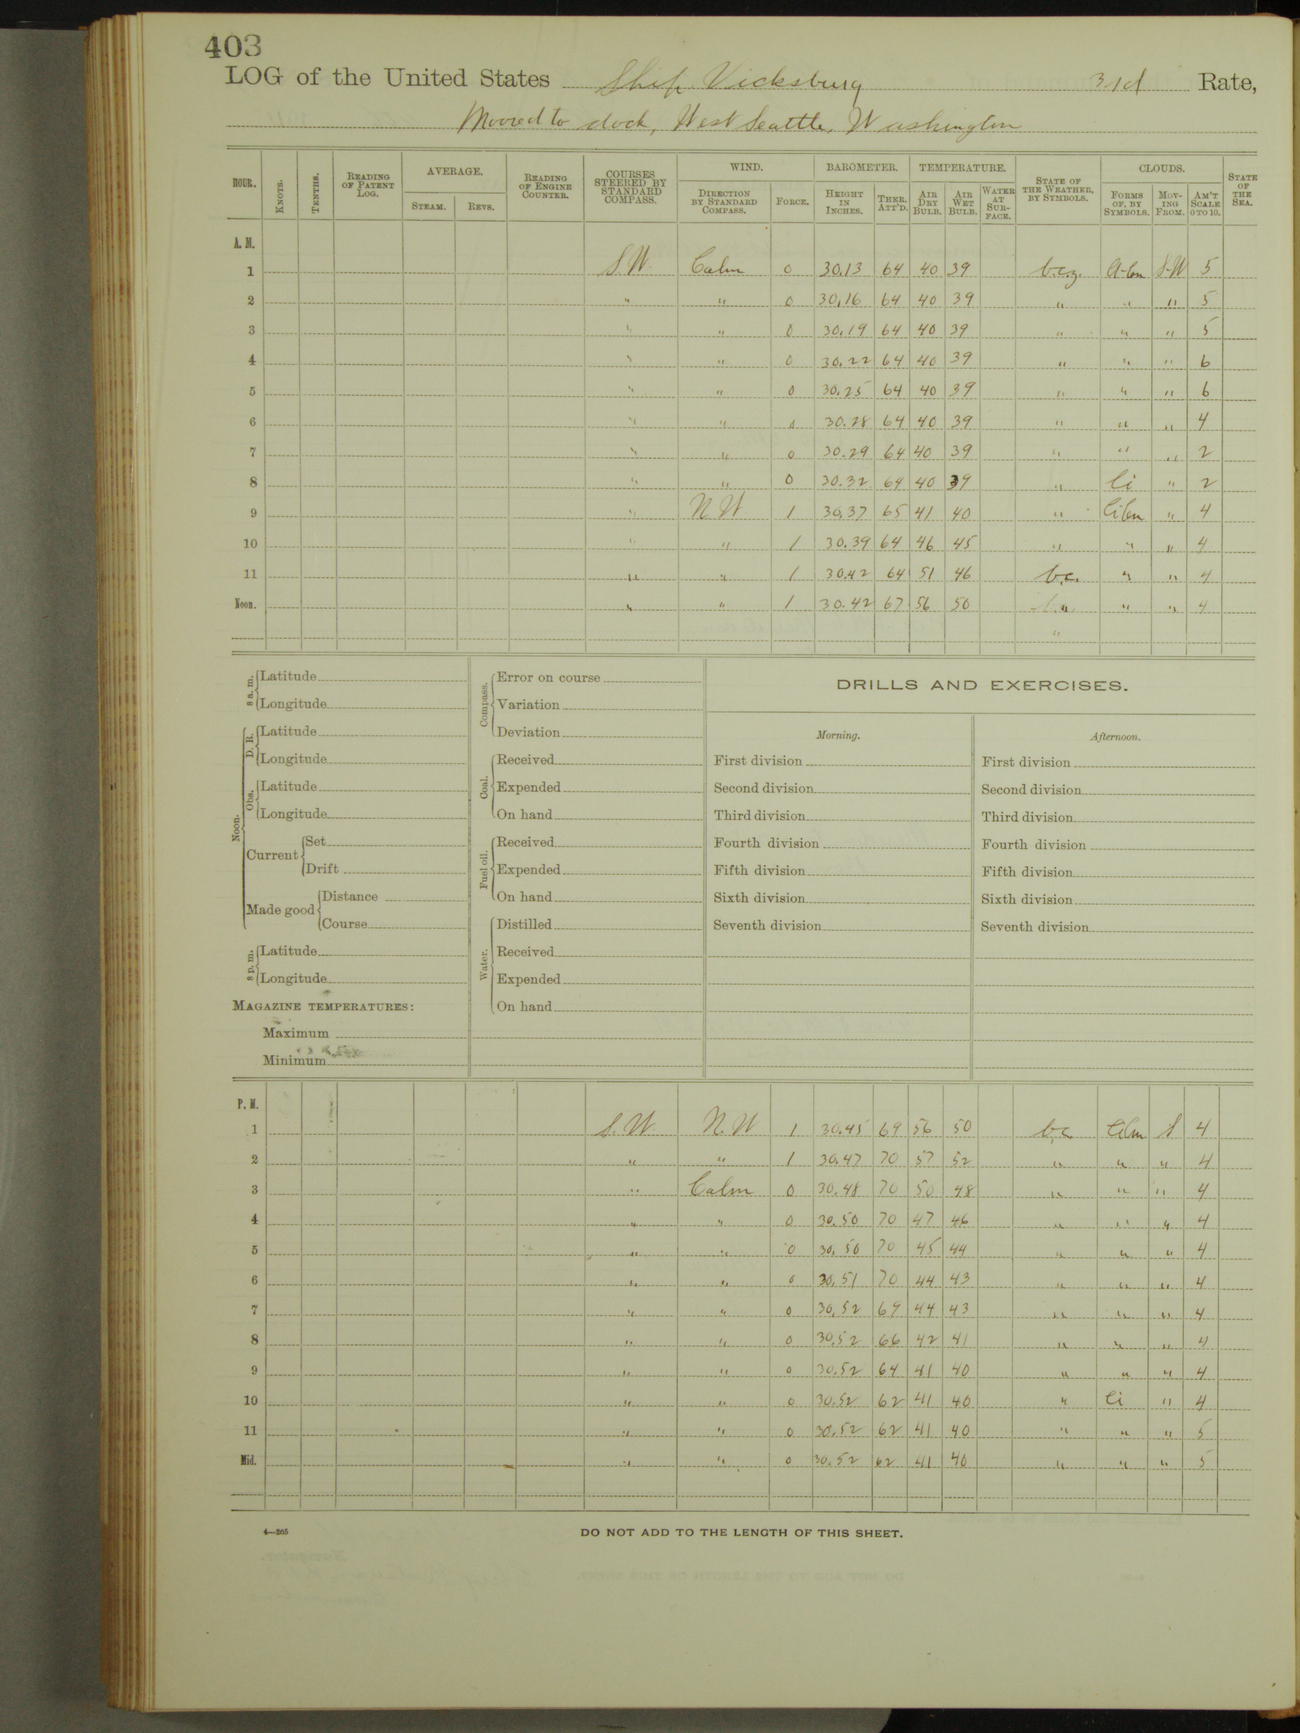 403
LOG of the United States Ship Vicksburg 3rd Rate,
Moored to dock, West Seattle, Washington
HOUR. KNOTS. TENTHS. READING OF PATENT LOG. AVERAGE. STEAM. REVS. READING OF ENGINE COUNTER. COURSES STEERED BY STANDARD COMPASS. WIND. DIRECTION BY STANDARD COMPASS. FORCE. BAROMETER. HEIGHT IN INCHES. THER. ATT'D. TEMPERATURE. AIR DRY BULB. AIR WET BULB. WATER AT SURFACE. STATE OF THE WEATHER, BY SYMBOLS. CLOUDS. FORMS OF, BY SYMBOLS. MOVING FROM. AM'T SCALE 0 TO 10. STATE OF THE SEA.
A. M.
1 S.W. Calm 0 30.13 64 40 39 b.c.z. A-Cu S-W 5
2 " " 0 30.16 64 40 39 " " " 5
3 " " 0 30.19 64 40 39 " " " 5
4 " " 0 30.22 64 40 39 " " " 6
5 " " 0 30.25 64 40 39 " " " 6
6 " " 0 30.28 64 40 39 " " " 4
7 " " 0 30.29 64 40 39 " " " 2
8 " " 0 30.32 64 40 39 " Ci " 2
9 " N.W 1 30.37 65 41 40 " CiCu " 4
10 " " 1 30.39 64 46 45 " " " 4
11 " " 1 30.42 64 51 46 b.c. " " 4
Noon. " " 1 30.42 67 56 50 " " " 4
"
8 a. m. Latitude
Longitude
Noon. D. R. Latitude
Longitude
Obs. Latitude
Longitude
Current Set
Drift
Made good Distance
Course
8 p. m. Latitude
Longitude
MAGAZINE TEMPERATURES:
Maximum
Minimum
Compass. Error on course
Variation
Deviation
Coal. Received
Expended
On hand
Fuel oil. Received
Expended
On hand
Water. Distilled
Received
Expended
On hand
DRILLS AND EXERCISES.
Morning.
First division
Second division
Third division
Fourth division
Fifth division
Sixth division
Seventh division
Afternoon.
First division
Second division
Third division
Fourth division
Fifth division
Sixth division
Seventh division
P. M.
1 S.W N.W 1 30.45 69 56 50 b.c. CiCu S 4
2 " " 1 30.47 70 57 52 " " " 4
3 " Calm 0 30.48 70 50 48 " " " 4
4 " " 0 30.50 70 47 46 " " " 4
5 " " 0 30.50 70 45 44 " " " 4
6 " " 0 30.51 70 44 43 " " " 4
7 " " 0 30.52 69 44 43 " " " 4
8 " " 0 30.52 66 42 41 " " " 4
9 " " 0 30.52 64 41 40 " " " 4
10 " " 0 30.52 62 41 40 " Ci " 4
11 " " 0 30.52 62 41 40 " " " 5
Mid. " " 0 30.52 62 41 40 " " " 5
4—265
DO NOT ADD TO THE LENGTH OF THIS SHEET.